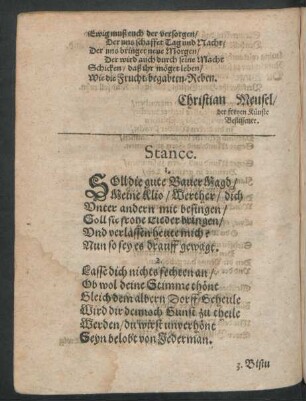 Ewig muß euch der versorgen/
Der uns schaffet Tag und Nacht/
Der uns bringet neue Morgen/
Der wird auch durch seine Macht
Schicken/ daß ihr möget leben/
Wie die Frucht-begabten-Reben.
Christian Meusel/
der freyen Künste
Beflissener.
Stance.
1.
SOll die gute Bauer Magd/
Meine Klio/ Werther/ dich
Unter andern mit besingen/
Soll sie frohe Lieder bringen/
Und verlassen heute mich?
Nun so sey es drauff gewagt.
2.
Lasse dich nichts fechten an/
Ob wol deine Stimme thöne
Gleich dem albern Dorff-Geheule
Wird dir dennoch Gunst zu theile
Werden/ du wirst unverhöne
Seyn belobt von Jederman.
3. Bistu